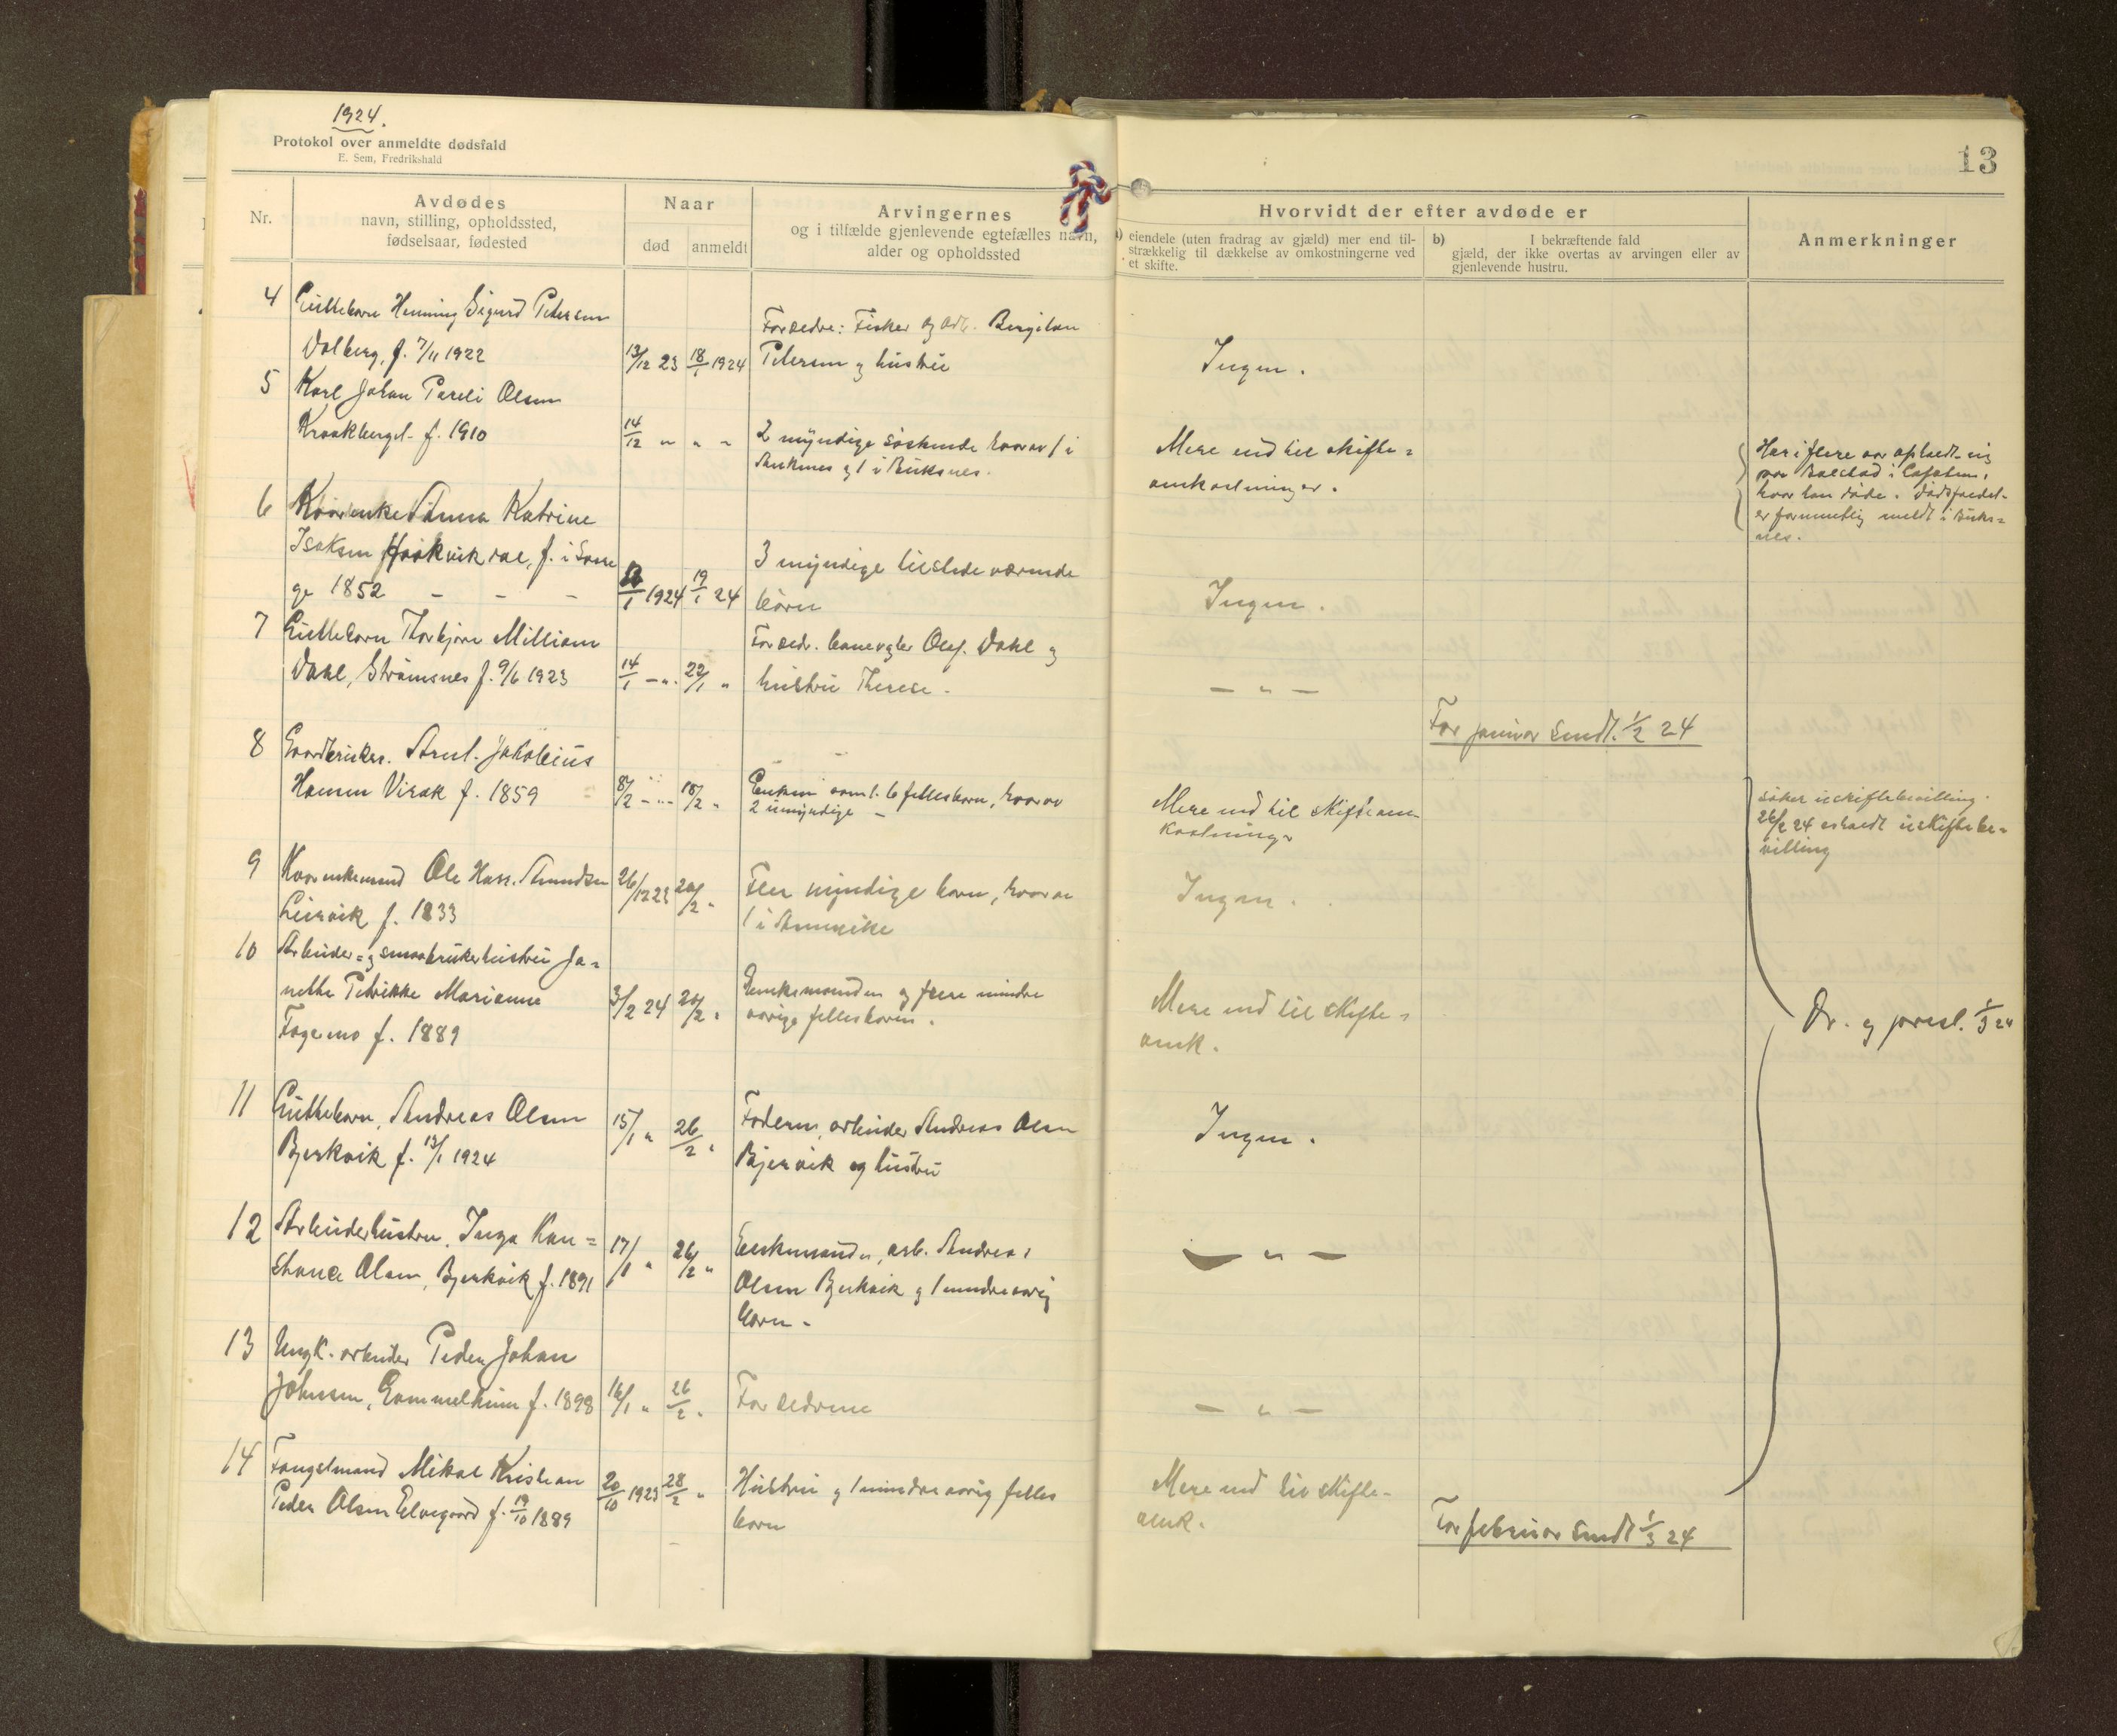 1924.
Protokol over anmeldte dødsfald
E. Sem, Fredrikshald
13
Nr.
Avdødes
navn, stilling, opholdssted,
fødselsaar, fødested
Naar
død
anmeldt
Arvingernes
og i tilfælde gjenlevende egtefælles navn,
alder og opholdssted
Hvorvidt der efter avdøde er
a) eiendele (uten fradrag av gjæld) mer end til-
strækkelig til dækkelse av omkostningerne ved
et skifte.
b) I bekræftende fald
gjæld, der ikke overtas av arvingen eller av
gjenlevende hustru.
Anmerkninger
4 Guttebarn Henning Sigurd Petersen
Dalberg, f. 7/11 1922
13/12 23 18/1 1924
Forældre: Fisker og arb.
Petersen og hustru
Ingen.
5 Karl Johan Pareli Olsen
Kraakberget f. 1910
14/12 " " "
2 myndige søskende hvorav 1 i
Ankenes og 1 i Buksnes.
Mere end til skifte=
omkostninger.
Har i flere aar opholdt sig
paa Balstad i Lofoten,
hvor han døde. Dødsfaldet
er formentlig meldt i Buks=
nes.
6 Anna Katrine
Isaksen f. i
1852 - - -
/1 1924 19/1 24
3 myndige tilstedeværende
børn
Ingen.
7 Guttebarn Thorbjørn William
Dahl, Strømsnes f. 9/6 1923
14/1 - " 22/1 "
Forældr. banevgter Olaf Dahl og
hustru Therese.
- " -
For januar sendt 1/2 24
8 Gaardbruker Arnt Jakobius
Hansen Virak f. 1859
8/2 - " - 18/2 "
Enken samt 6 fellesbarn, hvorav
2 umyndige -
Mere end til skifteom-
kostninger
søker uskiftebevilling.
26/2 24 erholdt uskiftebe=
villing
9 Ole Hans. Amundsen
Leirvik f. 1833
26/12 23 20/2 "
Flere myndige barn, hvorav
1 i Amerika
Ingen.
10 Arbeider= og smaabrukerhustru Ja=
nette Petrikke Marianne
Fagermo f. 1889
3/2 24 20/2 "
Enkemanden og flere mindre
aarige fellesbarn.
Mere end til skifte=
omk.
Dr. og presl. 1/3 24
11 Guttebarn, Andreas Olsen
Bjerkvik f. 13/1 1924
15/1 " 26/2 "
Faderen, arbeider Andreas Olsen
Bjerkvik og hustru
Ingen.
12 Arbeiderhustru, Inga Kon=
stance Olsen, Bjerkvik f. 1891
17/1 " 26/2 "
Enkemanden, arb. Andreas
Olsen Bjerkvik og 1 mindreaarig
barn.
- " -
13 Ungk. arbeider Peder Johan
Johnsen, f. 1898
16/1 " 26/2 "
Forældrene
- " -
14 Fangstmand Mikal Kristian
Peder Olsen Elvegaard f. 19/10 1889
20/10 1923 28/2 "
Hustru og 1 mindreaarig felles
barn
Mere end til skifte-
omk.
For februar sendt 1/3 24